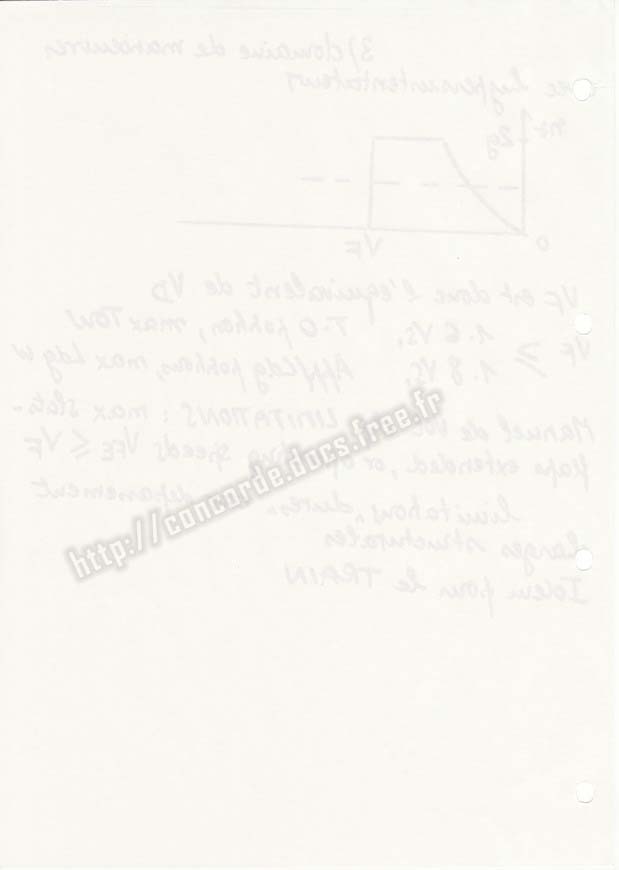 3) domaine de manoeuvres
avec hypersustentateurs
n 2g
0 VF
VF est donc l'équivalent de VD
VF ≥ 1.6 VS, T.O position, max TOW
1.8 VS, App/Ldg position, max Ldg W
Manuel de vol LIMITATIONS : max slats-
flaps extended, or operating speeds VFE ≤ VF
limitations "dures"
charges structurales
Idem pour le TRAIN
http://concorde.docs.free.fr